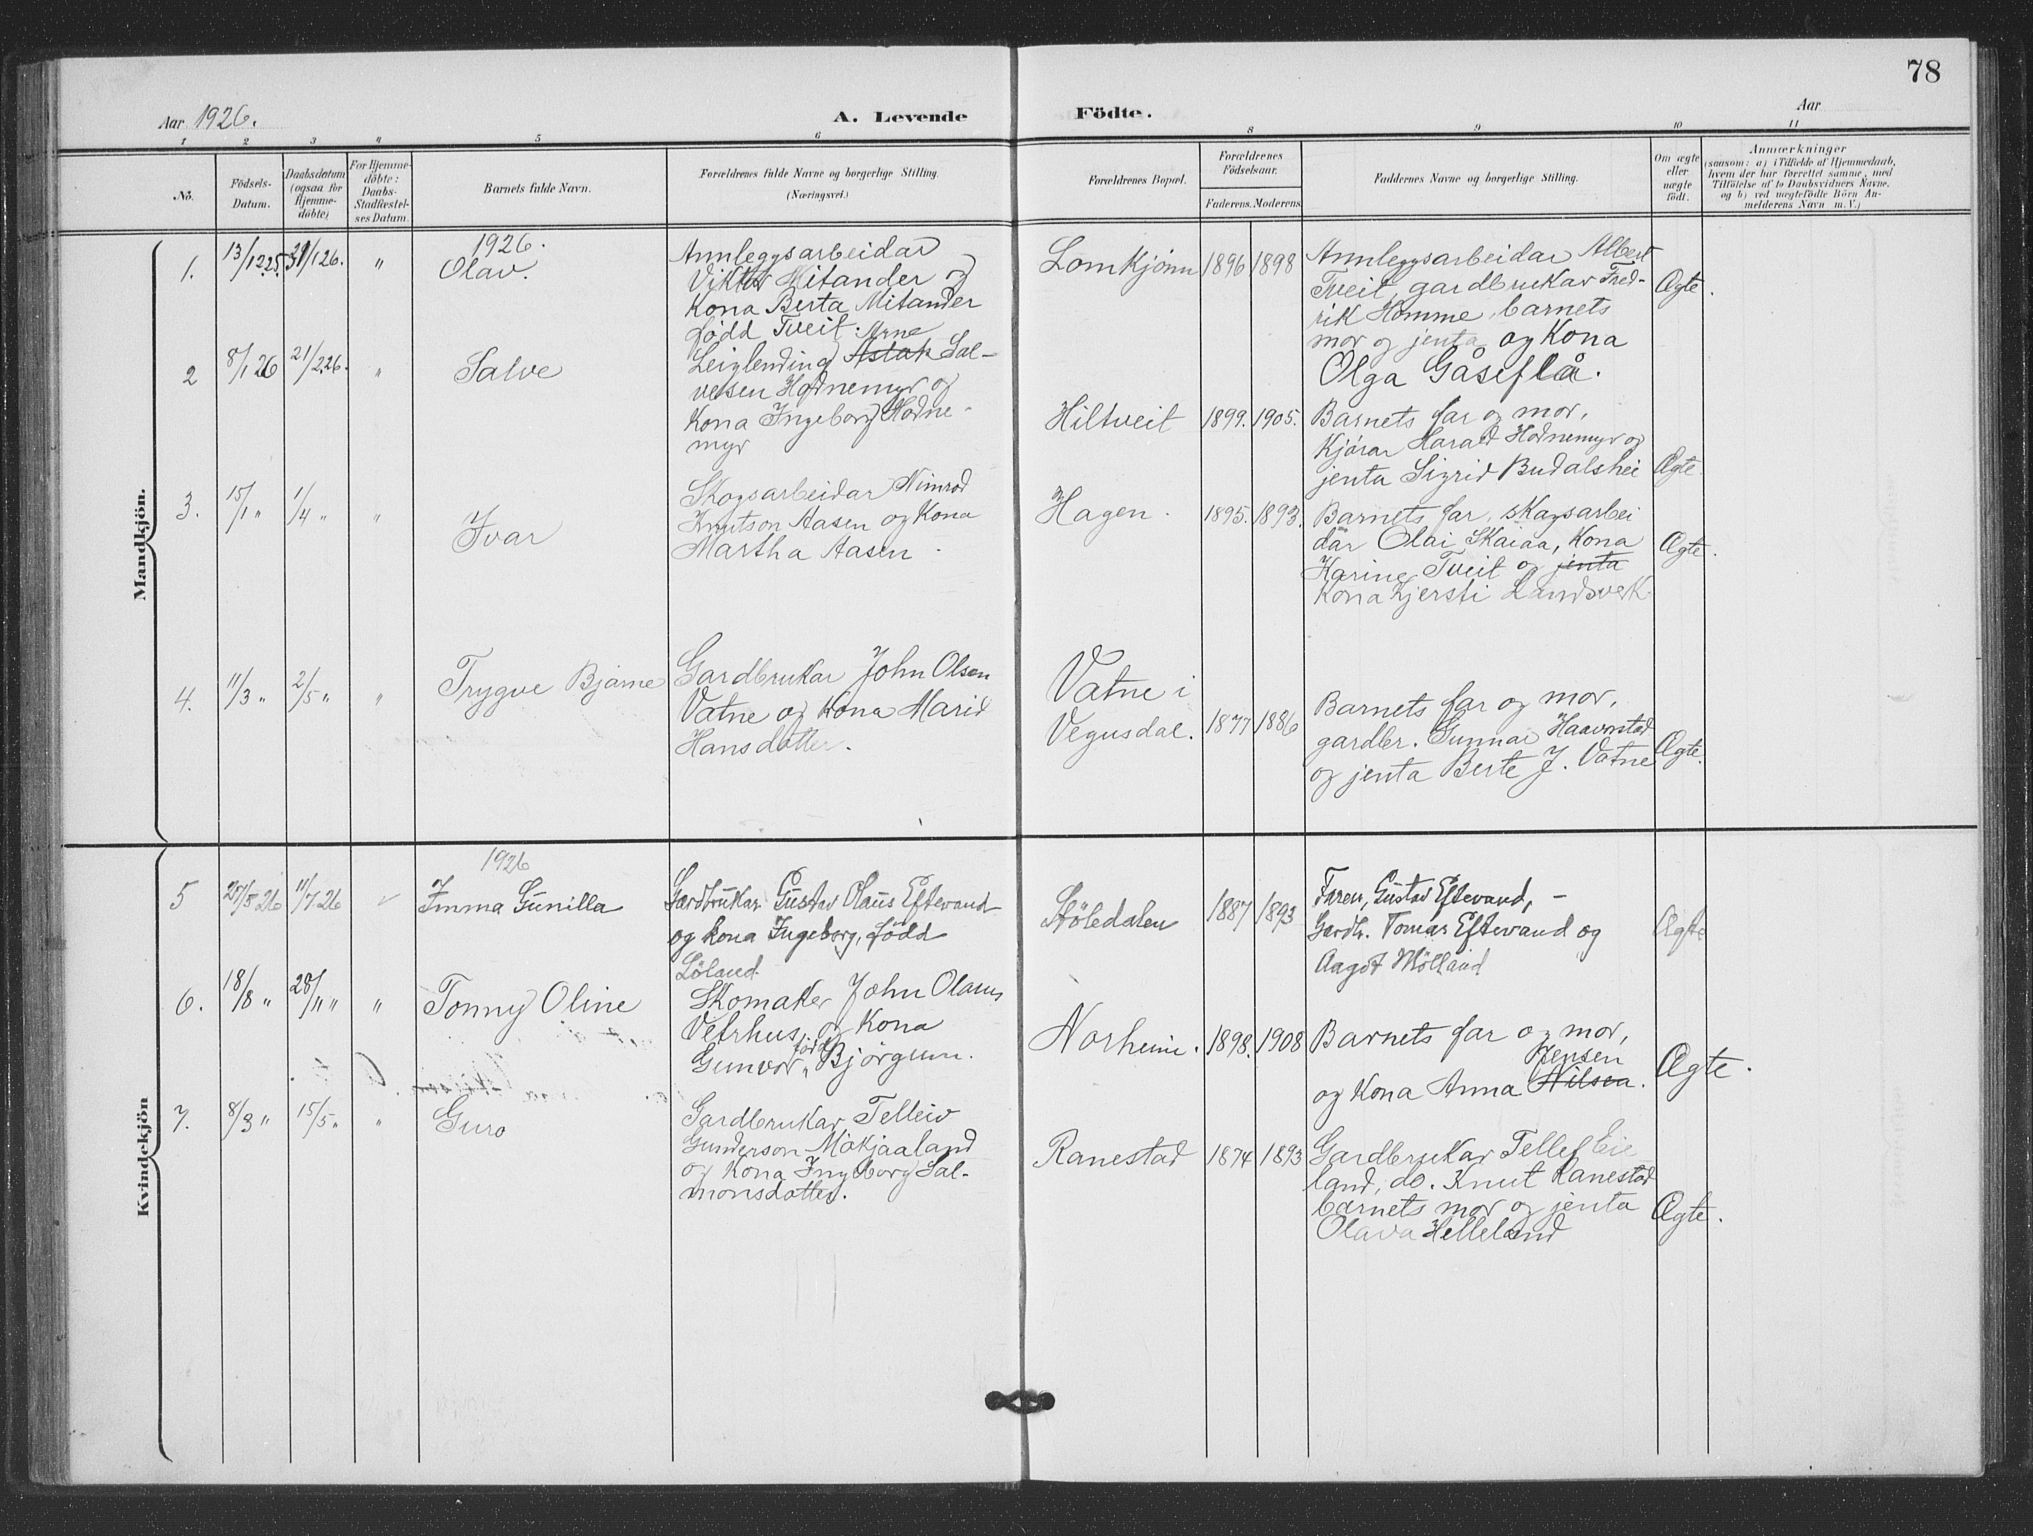 78
Aar 1926.
A. Levende Födte.
Aar
1 2 3 4 5 6 8 9 10 11
No.
Födsels-Datum.
Daabsdatum (ogsaa for Hjemmedöbte)
For Hjemmedöbte: Daabs-Stadfæstelses Datum.
Barnets fulde Navn.
Forældrenes fulde Navne og borgerlige Stilling. (Næringsvei.)
Forældrenes Bopæl.
Forældrenes Födselsaar.
Faderens. Moderens.
Faddernes Navne og borgerlige Stilling.
Om ægte eller uægte födt.
Anmærkninger
(saasom: a) i Tilfælde af Hjemmedaab, hvem der har forrettet samme, med Tilföielse af to Daabsvidners Navne, og b) ved uægtefödte Börn Anmelderens Navn m. V.)
Mandkjön.
1926.
1. 13/12 25. 31/1 26. " Olav.
Annleggsarbeidar
Viktor Mitander og
Kona Berta Mitander
född Tveit.
Lomkjönn 1896 1898
Annleggsarbeidar Albert
Tveit, gardbrukar Fred-
rik Homme, barnets
mor og jenta og Kona
Olga Gåseflå.
Ægte.
2 8/1 26 21/2 26. " Salve
Arne
Leiglending Aslak Sal-
vesen Hodnemyr og
Kona Ingeborg Hodne-
myr
Hiltveit 1899. 1905.
Barnets far og mor,
Kjörar Harald Hodnemyr og
jenta Sigrid Budalshei
Ægte
3. 15/1 " 1/4 " " Ivar
Skogsarbeidar Nimrod
Knutson Aasen og Kona
Martha Aasen.
Hagen. 1895. 1893.
Barnets far, skogsarbei
dar Olai Skaiaa, Kona
Karine Tveit og jenta
Kona Kjersti Landsverk.
Ægte.
4. 11/3 " 2/5 " " Trygve Bjarne
Gardbrukar John Olsen
Vatne og Kona Marid
Hansdotter.
Vatne i
Vegusdal. 1877 1886
Barnets far og mor,
gardbr. Gunnar Haavorstad
og jenta Berte J. Vatne
Ægte.
Kvindekjön
1926
5 20/5 26 11/7 26 Imma Gunilla
Gardbrukar Gustav Olaus Eftevand
og kona Ingeborg, född
Löland.
Stöledalen 1887 1893
Faren, Gustav Eftevand, -
Gardbr. Tomas Eftevand og
Aagot Mölland
Ægte
6. 18/8 " 28/11 " " Tonny Oline
Skomaker John Olaus
Vetrhus, og Kona
Gunvor född Bjorgum.
Norheim. 1898. 1908
Barnets far og mor,
Jensen
og Kona Anna Nilsen.
Ægte.
7. 8/3 " 15/5 " " Guro
Gardbrukar Telleiv
Gunderson Mökjaaland
og Kona Ingeborg Sal-
monsdotter.
Ranestad 1874 1893
Gardbrukar Tellef Eie
land, do. Knut Ranestad
barnets mor og jenta
Olava Helleland
Ægte.